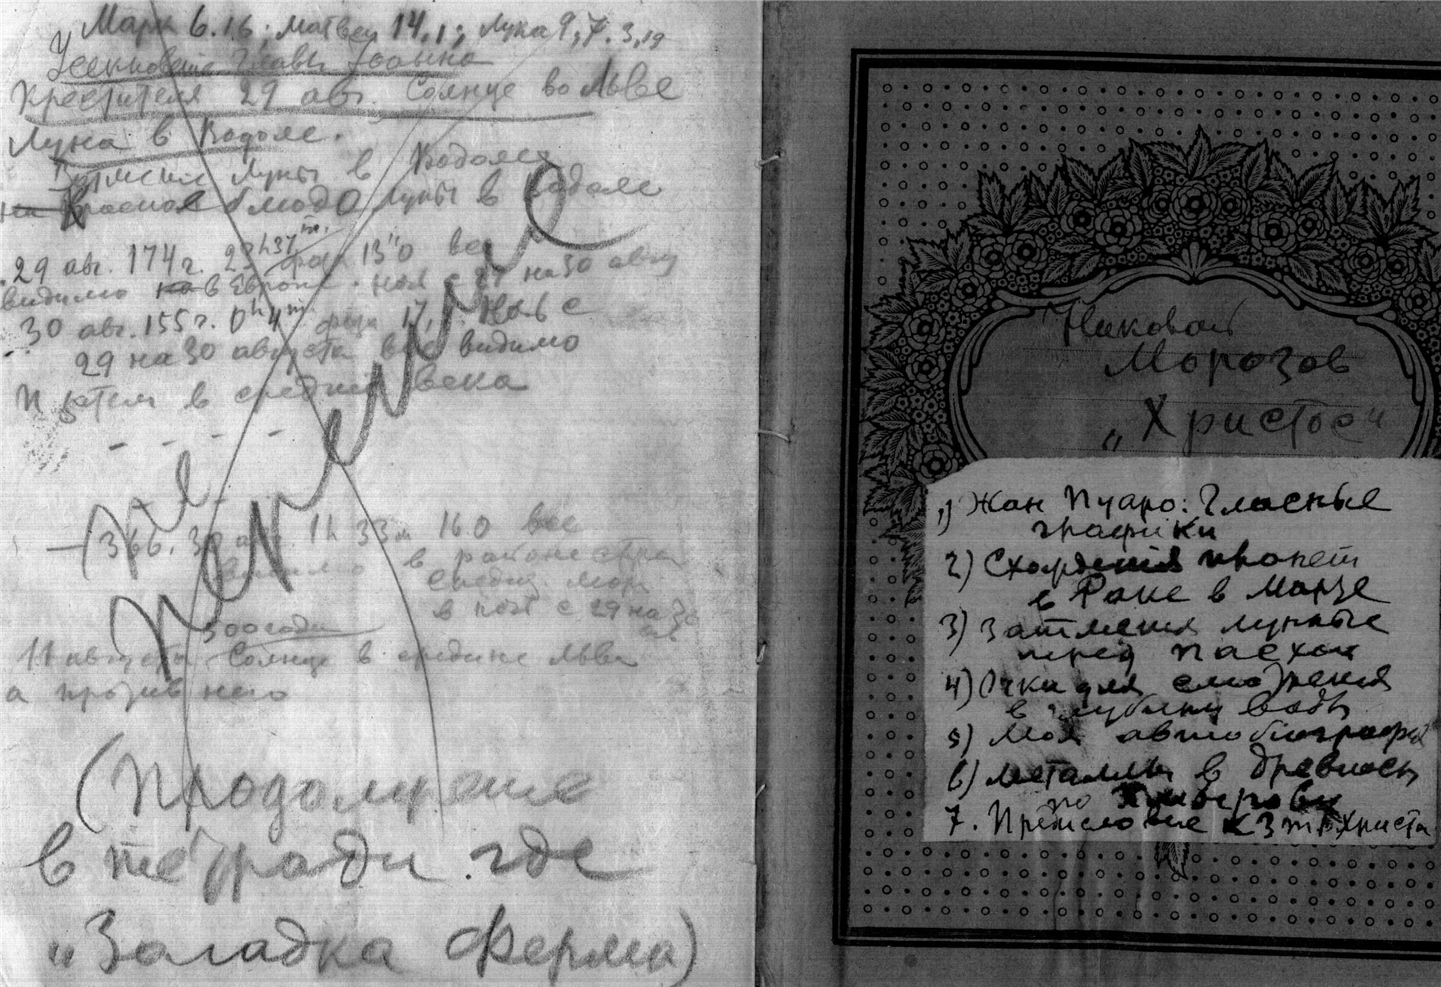 Марк 6.16; Матвей 14,1; Лука 9,7. 3,19
Усекновение Главы Іоанна
Крестителя 29 авг. Солнце во Льве
Луна в Водоле.
Затмения Луны в Водолее
Красное блюдо Луны в Водоле
29 авг. 174 г. 22h37m. фаза 13"0 вся
видимо на в Европе. ноя с 29 на 30 авгу
30 авг. 155 г. 0h4m фаза 17, Ноя с
29 на 30 августа все видимо
И затем в средние века
366. 30 авг. 1h 33m 160 все
видимо в районе стран
средиз. мор
в ночь с 29 на 30
300 годы
11 августа Солнце в средине Льва
а против него
Перенесено
(Продолжение
в тетради где
„Загадка Ферма)
Николай
Морозов
„Христос"
1) Жан Пуаро: Гласные
графики
2) Схождения планет
в Раке в Марте
3) Затмения лунные
перед пасхой
4) Очки для смотрения
в глубину воды
5) Моя автобіография
6) Металлы в древности
по
7. Предисловие к 3 т. Христа